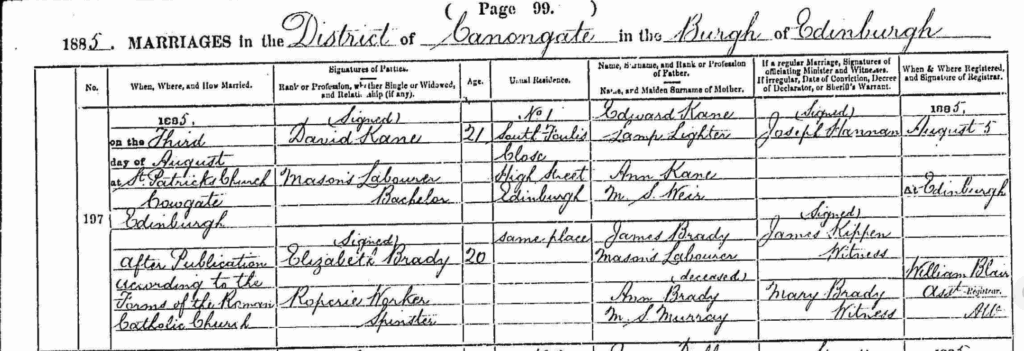 ( Page 99. )
1885. MARRIAGES in the District of Canongate in the Burgh of Edinburgh
No.
When, Where, and How Married.
Signatures of Parties.
Rank or Profession, whether Single or Widowed,
and Relationship (if any).
Age.
Usual Residence.
Name, Surname, and Rank or Profession
of Father.
Name, and Maiden Surname of Mother.
If a regular Marriage, Signatures of
officiating Minister and Witnesses.
If irregular, Date of Conviction, Decree
of Declarator, or Sheriff's Warrant.
When & Where Registered,
and Signature of Registrar.
197
1885,
on the Third
day of August
at St. Patrick's Church
Cowgate
Edinburgh
After Publication
according to the
Forms of the Roman
Catholic Church
(Signed)
David Kane
Mason's Labourer
Bachelor
(Signed)
Elizabeth Brady
Roperie Worker
Spinster
21
20
No 1
South Foulis
Close
High Street
Edinburgh
same place
Edward Kane
Lamp Lighter
Ann Kane
M. S. Weir
James Brady
Mason's Labourer
(deceased)
Ann Brady
M. S. Murray
(Signed)
Joseph Hannan
(Signed)
James Kippen
Witness
Mary Brady
Witness
1885,
August 5
at Edinburgh
William Blair
Asst Registrar.
1885